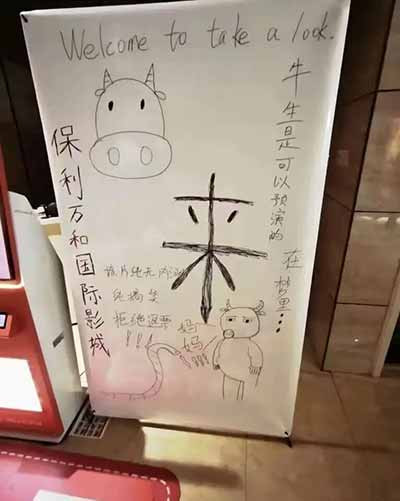 Welcome to take a look.
保利万和国际影城
牛生是可以预演的 在梦里...
来
该片纯无
纯搞笑
拒绝退票
!!!
妈妈!!!